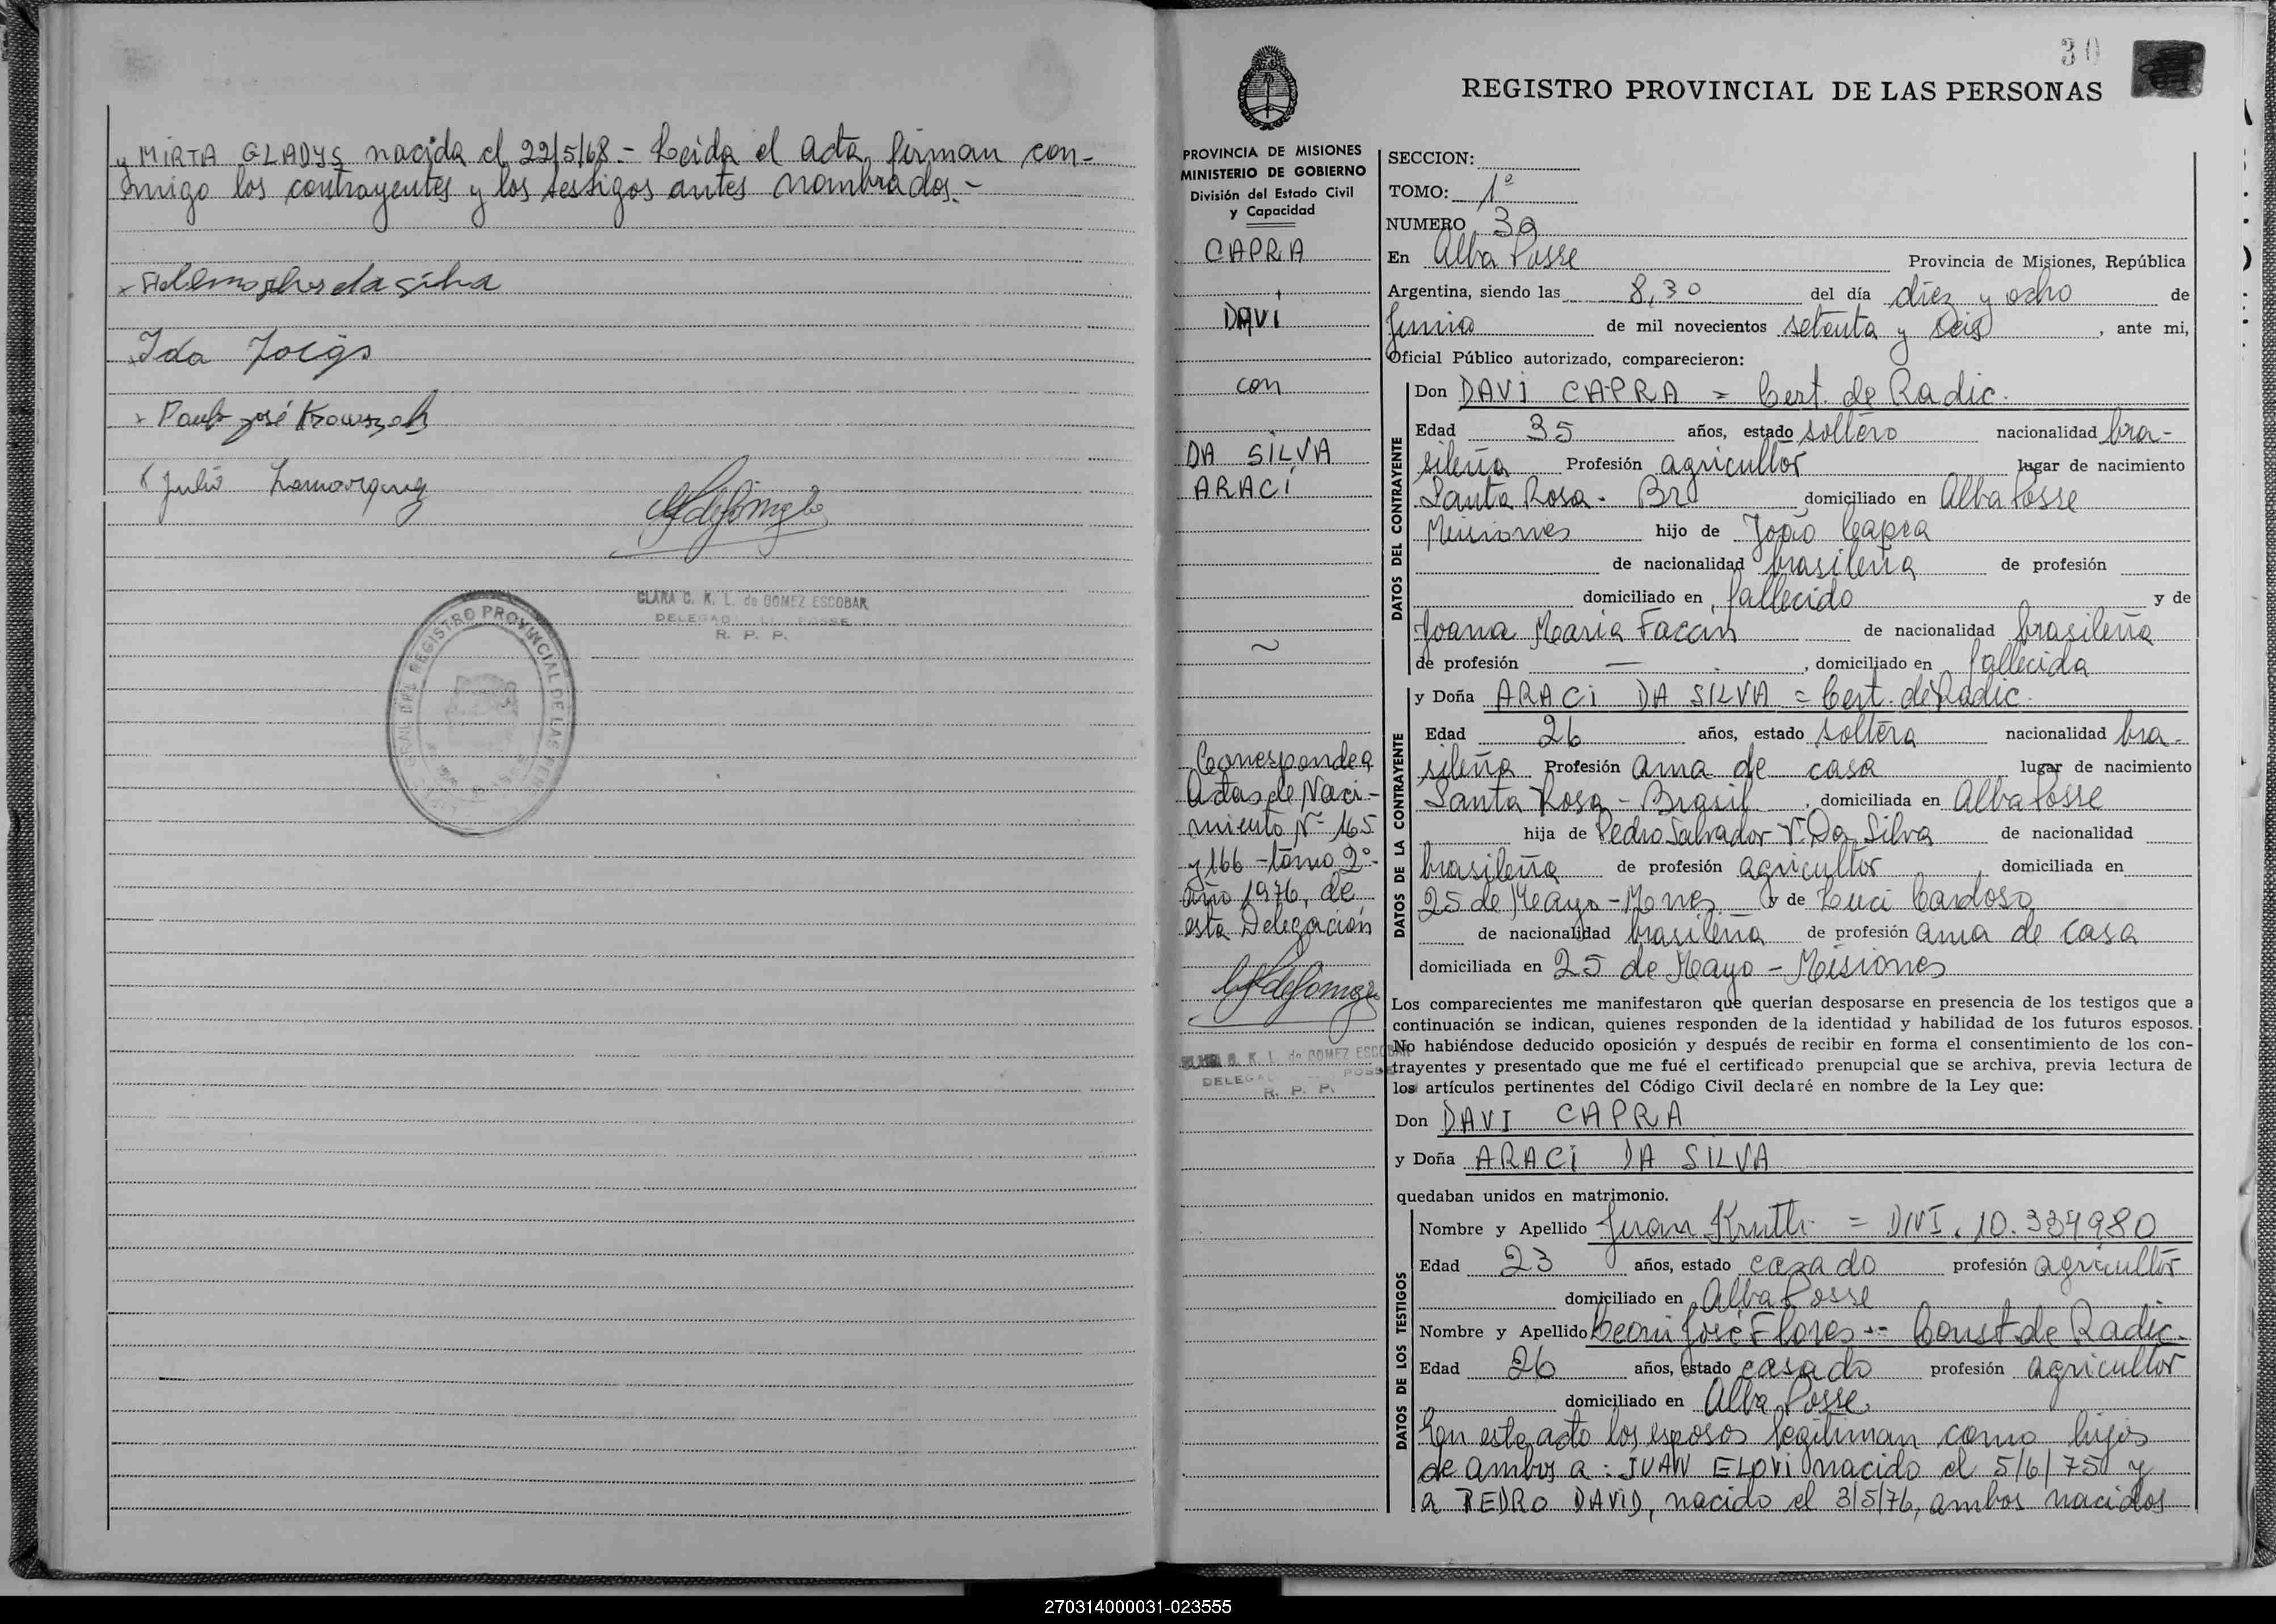 y MIRTA GLADYS nacida el 22/5/68.- Leida el acta, firman con-
migo los contrayentes y los testigos antes nombrados.-
da silva
Ida
José
Julio
CLARA C. K. L. de GOMEZ ESCOBAR
R. P. P.
REGISTRO PROVINCIAL DE LAS
30
REGISTRO PROVINCIAL DE LAS PERSONAS
PROVINCIA DE MISIONES
MINISTERIO DE GOBIERNO
División del Estado Civil
y Capacidad
CAPRA
DAVI
con
DA SILVA
ARACI
Corresponde a
Actas de Naci-
miento Nº 165
y 166 - tomo 2º-
año 1976, de
esta Delegación
K. L. de GOMEZ ESCOBAR
R. P. P.
SECCION:
TOMO: 1º
NUMERO 30
En Alba Posse Provincia de Misiones, República
Argentina, siendo las 8,30 del día diez y ocho de
Junio de mil novecientos setenta y seis, ante mi,
Oficial Público autorizado, comparecieron:
DATOS DEL CONTRAYENTE
Don DAVI CAPRA = Cert. de Radic.
Edad 35 años, estado soltero nacionalidad bra-
sileña Profesión agricultor lugar de nacimiento
Santa Rosa - Br. domiciliado en Alba Posse
Misiones hijo de João Capra
de nacionalidad brasileña de profesión
domiciliado en fallecido y de
Joana Maria Faccin de nacionalidad brasileña
de profesión —, domiciliado en fallecida
DATOS DE LA CONTRAYENTE
y Doña ARACI DA SILVA = Cert. de Radic.
Edad 26 años, estado soltera nacionalidad bra-
sileña Profesión ama de casa lugar de nacimiento
Santa Rosa - Brasil, domiciliada en Alba Posse
hija de Pedro Salvador V. Da Silva de nacionalidad
brasileña de profesión agricultor, domiciliada en
25 de Mayo - Mnes y de Luci Cardoso
de nacionalidad brasileña de profesión ama de casa
domiciliada en 25 de Mayo - Misiones
Los comparecientes me manifestaron que querían desposarse en presencia de los testigos que a
continuación se indican, quienes responden de la identidad y habilidad de los futuros esposos.
No habiéndose deducido oposición y después de recibir en forma el consentimiento de los con-
trayentes y presentado que me fué el certificado prenupcial que se archiva, previa lectura de
los artículos pertinentes del Código Civil declaré en nombre de la Ley que:
Don DAVI CAPRA
y Doña ARACI DA SILVA
quedaban unidos en matrimonio.
DATOS DE LOS TESTIGOS
Nombre y Apellido Juan = DNI. 10.334980
Edad 23 años, estado casado profesión agricultor
domiciliado en Alba Posse
Nombre y Apellido José Flores -- Const. de Radic.
Edad 26 años, estado casado profesión agricultor
domiciliado en Alba Posse.
En este acto los esposos legitiman como hijos
de ambos a: JUAN ELOVI nacido el 5/6/75 y
a PEDRO DAVID, nacido el 3/5/76, ambos nacidos
270314000031-023555